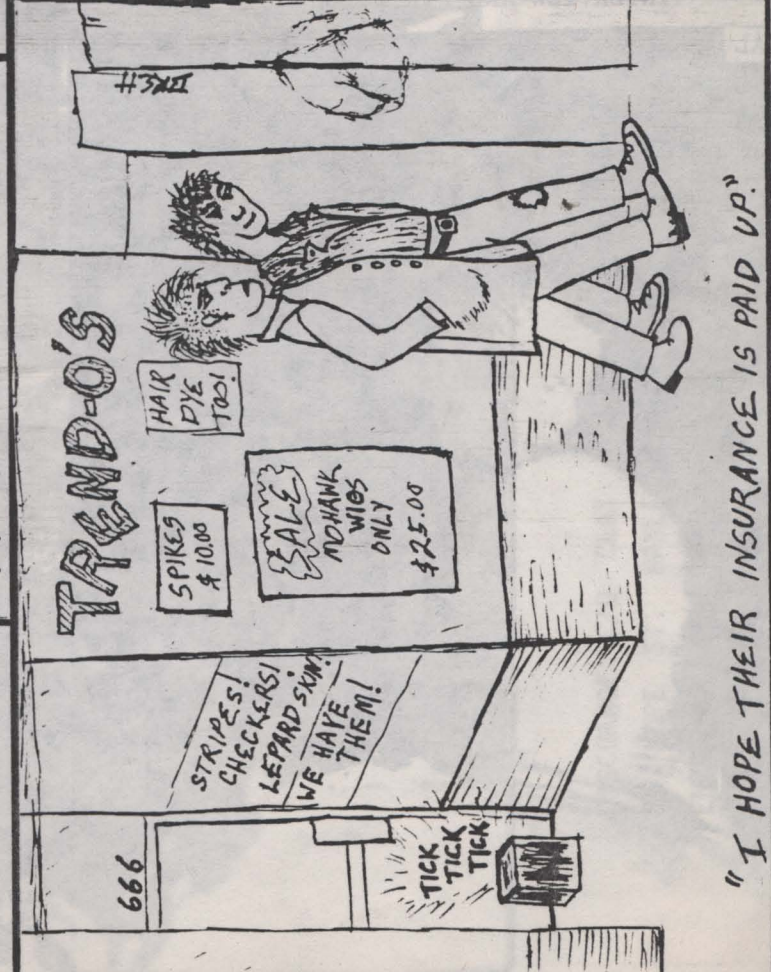 TREND-O'S
SPIKES
$10.00
HAIR
DYE
TOO!
SALE
MOHAWK
WIGS
ONLY
$25.00
STRIPES!
CHECKERS!
LEPARD SKIN!
WE HAVE
THEM!
666
TICK
TICK
TICK
"I HOPE THEIR INSURANCE IS PAID UP."